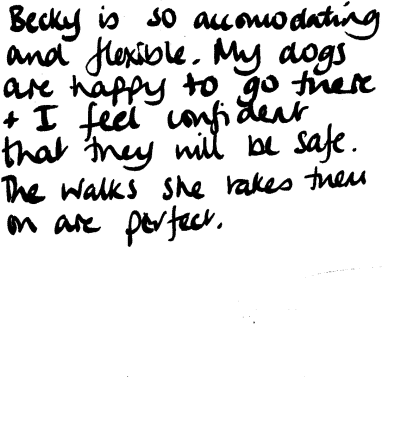 Becky is so accomodating
and flexible. My dogs
are happy to go there
+ I feel confident
that they will be safe.
The walks she takes them
on are perfect.